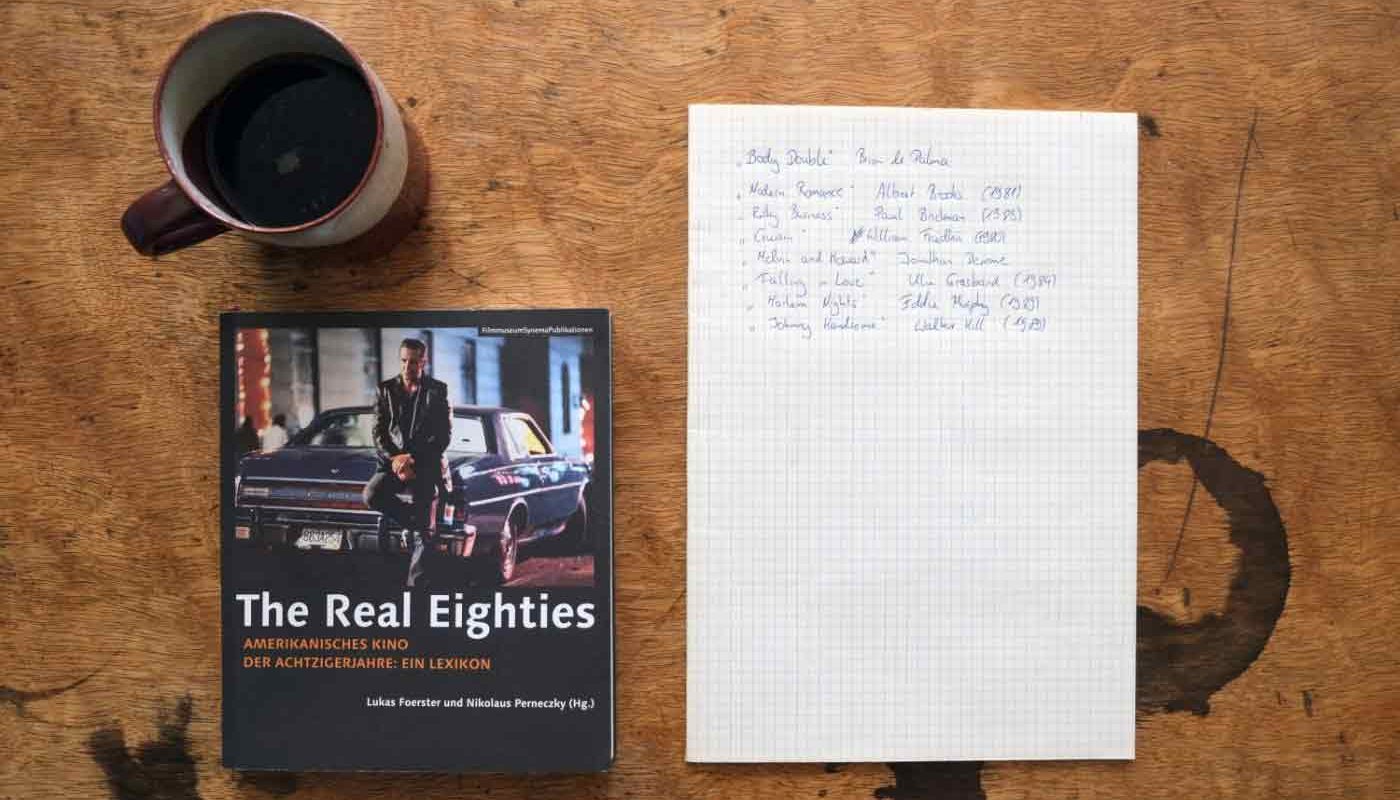 FilmmuseumSynemaPublikationen
The Real Eighties
AMERIKANISCHES KINO
DER ACHTZIGERJAHRE: EIN LEXIKON
Lukas Foerster und Nikolaus Perneczky (Hg.)
„Body Double" Brian de Palma
„Modern Romance" Albert Brooks (1981)
„Risky Business" Paul Brickman (1983)
William Friedkin (1980)
„Melvin and Howard" Jonathan Demme
„Falling in Love" Ulu Grosbard (1984)
„Harlem Nights" Eddie Murphy (1989)
„Johnny Handsome" Walter Hill (1989)